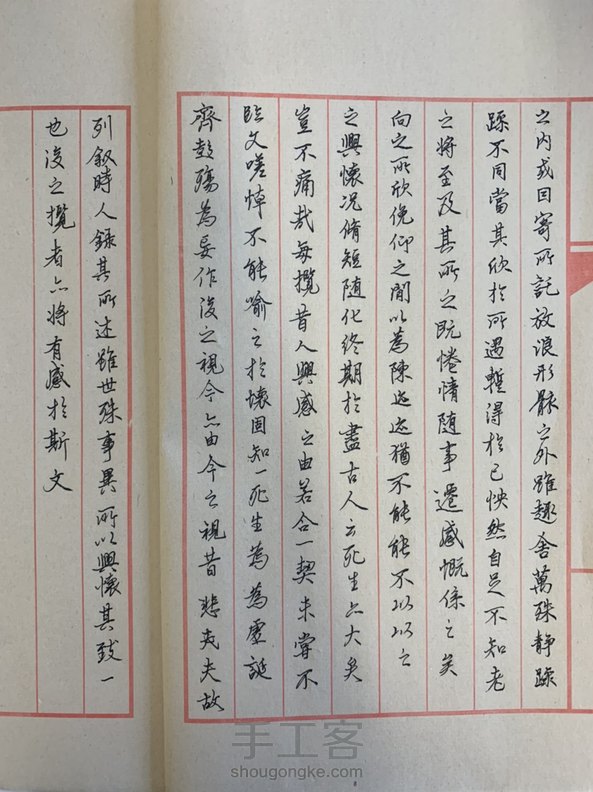 之内或因寄所託放浪形骸之外雖趣舍萬殊静躁
躁不同當其欣於所遇暫得於己怏然自足不知老
之將至及其所之既惓情随事遷感慨係之矣
向之所欣俛仰之閒以為陳迹迹猶不能能不以以之
之興懷况脩短随化終期於盡古人云死生亦大矣
豈不痛哉每攬昔人興感之由若合一契未嘗不
臨文嗟悼不能喻之於懷固知一死生為為虛誕
齊彭殤為妄作後之視今亦由今之視昔悲夫夫故
列叙時人錄其所述雖世殊事異所以興懷其致一
也後之攬者亦將有感於斯文
手工客
shougongke.com